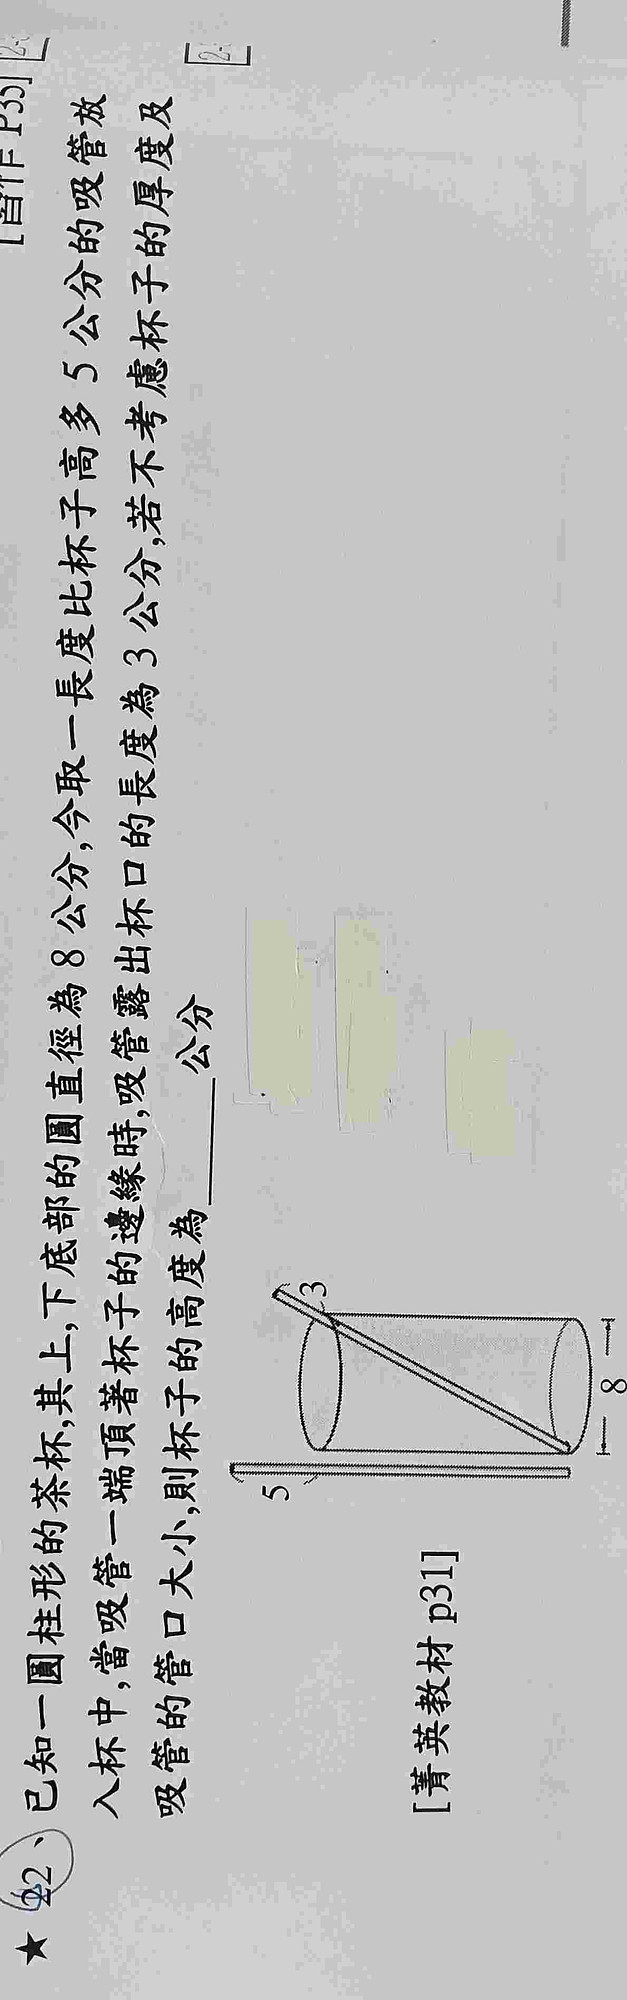 [習作 P35]
★ 22、已知一圓柱形的茶杯,其上,下底部的圓直徑為 8 公分,今取一長度比杯子高多 5 公分的吸管放
入杯中,當吸管一端頂著杯子的邊緣時,吸管露出杯口的長度為 3 公分,若不考慮杯子的厚度及
吸管的管口大小,則杯子的高度為______公分
5
3
8
[菁英教材 p31]